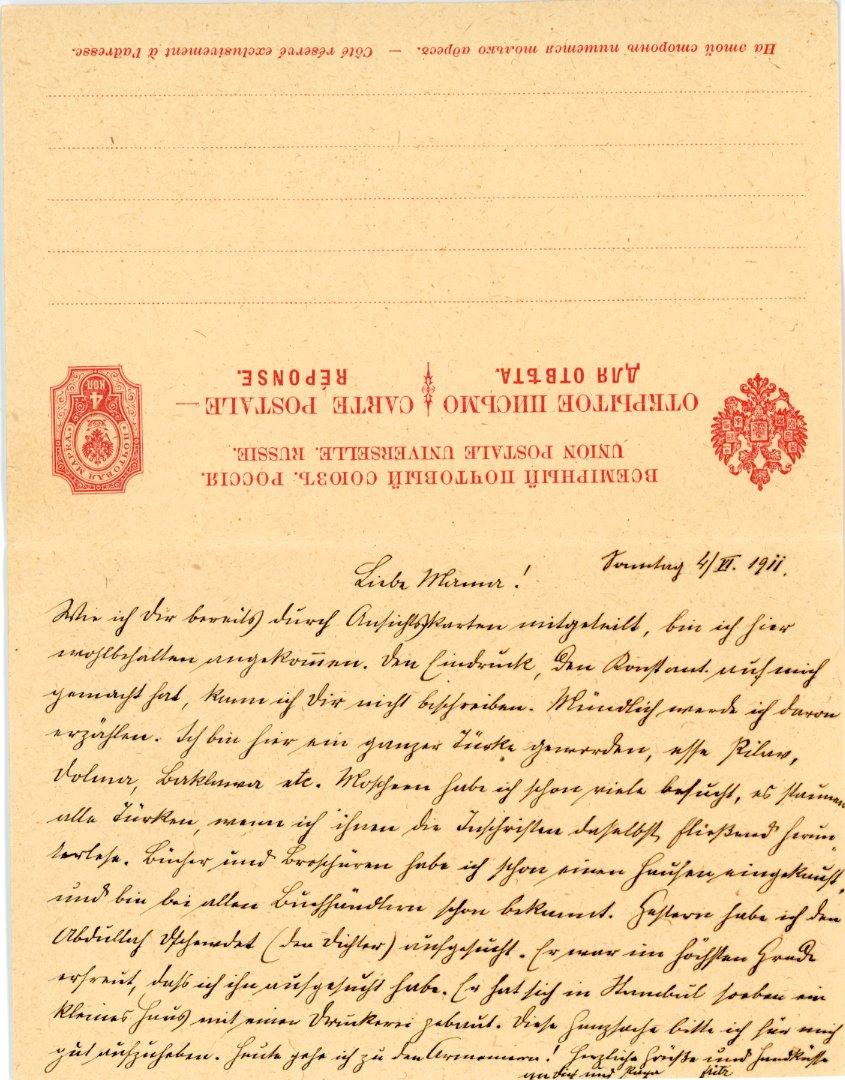 На этой сторонѣ пишется только адресъ. — Côté réservé exclusivement à l'adresse.
ВСЕМІРНЫЙ ПОЧТОВЫЙ СОЮЗЪ. РОССІЯ.
UNION POSTALE UNIVERSELLE. RUSSIE.
ОТКРЫТОЕ ПИСЬМО CARTE POSTALE —
ДЛЯ ОТВѢТА. RÉPONSE.
ПОЧТОВАЯ МАРКА
4 КОП
Sonntag 4/VI. 1911.
Liebe Mama!
Wie ich Dir bereits durch Ansichtskarten mitgeteilt, bin ich hier
wohlbehalten angekom̅en. Den Eindruck, den Konstant. auf mich
gemacht hat, kann ich Dir nicht beschreiben. Mündlich werde ich davon
erzählen. Ich bin hier ein ganzer Türke geworden, esse Pilav,
Dolma, Baklawa etc. Moscheen habe ich schon viele besucht, es staunen
alle Türken, wenn ich ihnen die Inschriften daselbst fließend herun-
terlese. Bücher und Broschüren habe ich schon einen Haufen eingekauft,
und bin bei allen Buchhändlern schon bekannt. Gestern habe ich den
Abdullah Dschewdet (den Dichter) aufgesucht. Er war im höchsten Grade
erfreut, dass ich ihn aufgesucht habe. Er hat sich in Stambul soeben ein
kleines Haus mit einer Druckerei gebaut. Diese Ganzsache bitte ich für mich
gut aufzuheben. Heute gehe ich zu den Armeniern! Herzliche Grüße und Handküsse
an Dich und Papa Fritz